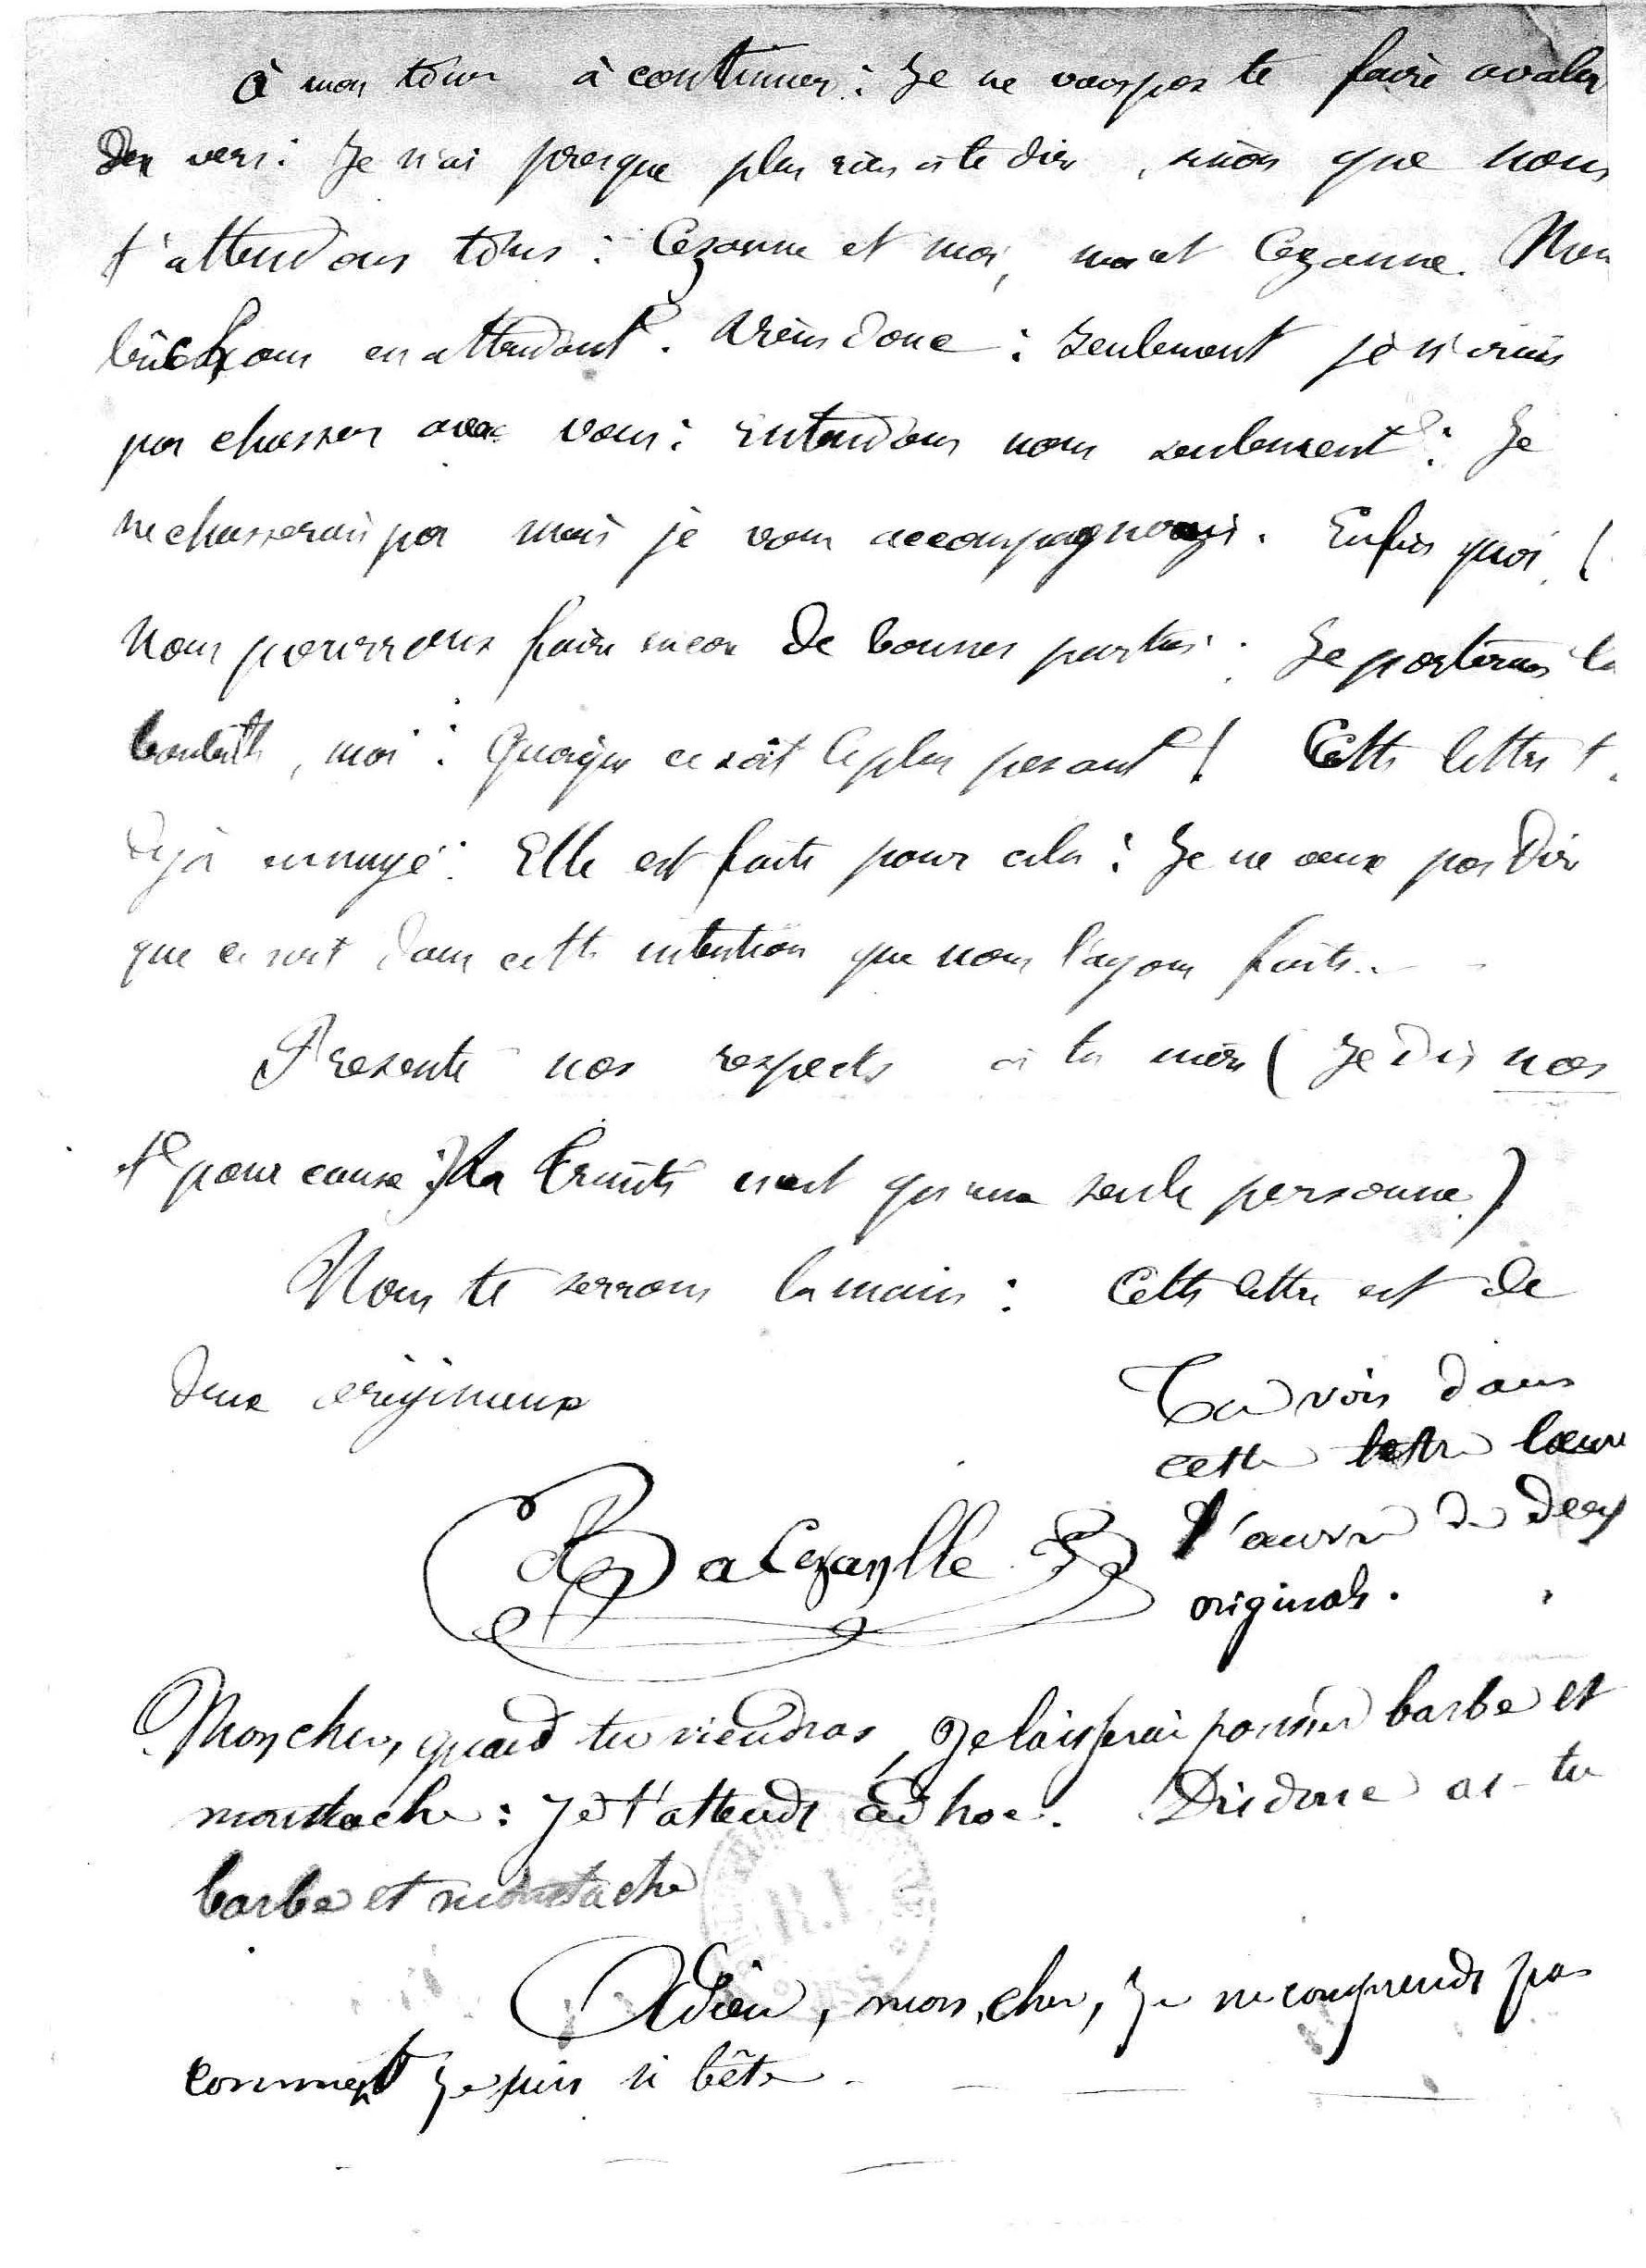 à mon tour à continuer : Je ne veux pas te faire avaler
des vers : Je n'ai presque plus rien à te dire, sinon que nous
t'attendons tous : Cezanne et moi, moi et Cezanne. Nous
bûchons en attendant. Viens donc : seulement je n'irais
pas chasser avec vous : entendons nous seulement : Je
ne chasserais pas mais je vous accompagnerais. Enfin quoi !
Nous pourrons faire encore de bonnes parties : Je porterais la
bouteille, moi : quoique ce soit le plus pesant ! Cette lettre t'
déjà ennuyé : Elle est faite pour cela : Je ne veux pas dire
que ce soit dans cette intention que nous l'ayons faite.
Presente nos respects à ta mère ( Je dis nos
et pour cause : La Trinité n'est qu'une seule personne.)
Nous te serrons la main : Cette lettre est de
deux originaux
Tu vois dans
cette lettre l'œuvre
l'œuvre de deux
originals.
BaCezanylle
Mon cher, quand tu viendras, Je laisserai pousser barbe et
moustache : Je t'attends ad hoc. Dis donc as-tu
barbe et moustache
Adieu, mon cher, Je ne comprends pas
comment je puis si bête.
R.F.